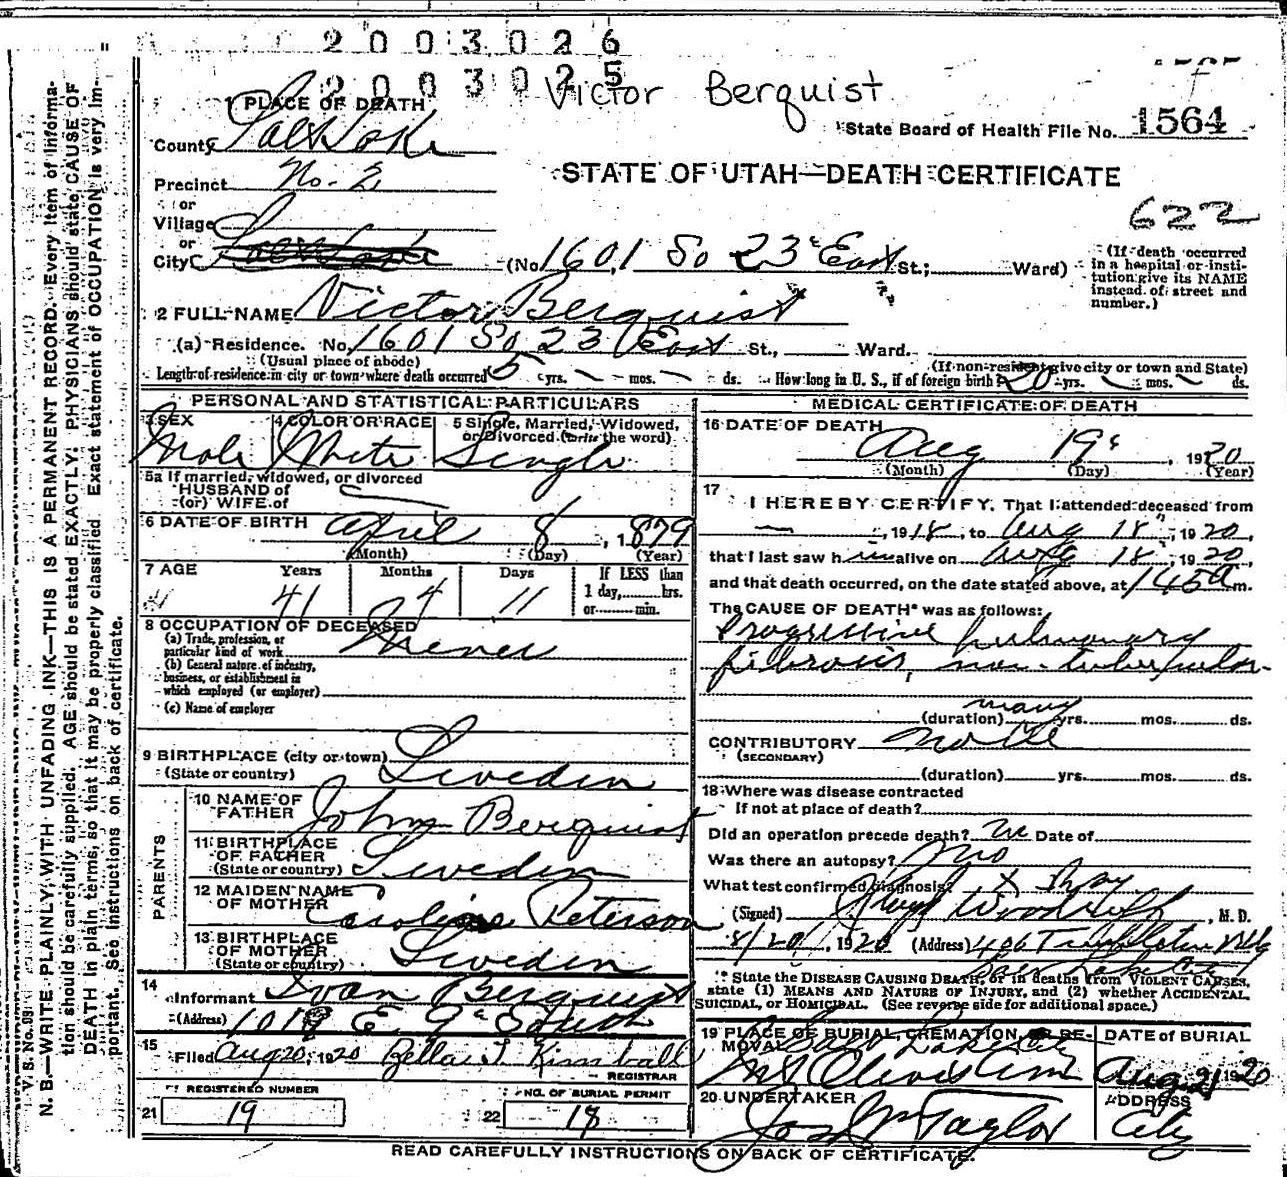 2003026
2003025
Victor Berquist
1 PLACE OF DEATH
State Board of Health File No. 1564
County Salt Lake
Precinct No. 2
STATE OF UTAH—DEATH CERTIFICATE
or
Village
622
or
City Salt Lake (No. 1601 So 23 East St.; Ward)
(If death occurred in a hospital or institution give its NAME instead of street and number.)
2 FULL NAME Victor Berquist
(a) Residence. No. 1601 So 23 East St., Ward.
(Usual place of abode) (If non-resident give city or town and State)
Length of residence in city or town where death occurred 5 yrs. — mos. — ds. How long in U. S., if of foreign birth? 20 yrs. — mos. — ds.
PERSONAL AND STATISTICAL PARTICULARS
3 SEX Male
4 COLOR OR RACE White
5 Single, Married, Widowed, or Divorced (write the word) Single
5a If married, widowed, or divorced
HUSBAND of
(or) WIFE of
6 DATE OF BIRTH April 8, 1879
(Month) (Day) (Year)
7 AGE Years Months Days If LESS than
41 4 11 1 day, hrs.
or min.
8 OCCUPATION OF DECEASED
(a) Trade, profession, or particular kind of work Miner
(b) General nature of industry, business, or establishment in which employed (or employer)
(c) Name of employer
9 BIRTHPLACE (city or town)
(State or country) Sweden
PARENTS
10 NAME OF FATHER John Berquist
11 BIRTHPLACE OF FATHER
(State or country) Sweden
12 MAIDEN NAME OF MOTHER Caroline Peterson
13 BIRTHPLACE OF MOTHER
(State or country) Sweden
14 Informant Ivan Berquist
(Address) 1019 E 9 South
15 Filed Aug 20, 1920 Kimball
REGISTRAR
REGISTERED NUMBER
21 19
NO. OF BURIAL PERMIT
22 18
MEDICAL CERTIFICATE OF DEATH
16 DATE OF DEATH
Aug 19, 1920
(Month) (Day) (Year)
17 I HEREBY CERTIFY, That I attended deceased from
—, 1918, to Aug 18, 1920,
that I last saw him alive on Aug 18, 1920,
and that death occurred, on the date stated above, at 145 a m.
The CAUSE OF DEATH* was as follows:
Progressive pulmonary
fibrosis, non-tubercular
(duration) many yrs. mos. ds.
CONTRIBUTORY None
(SECONDARY)
(duration) yrs. mos. ds.
18 Where was disease contracted
If not at place of death?
Did an operation precede death? no Date of
Was there an autopsy? no
What test confirmed diagnosis? X Ray
(Signed) Woodruff, M. D.
8/20, 1920 (Address) 406 Templeton Bldg
Salt Lake City
* State the DISEASE CAUSING DEATH, or in deaths from VIOLENT CAUSES, state (1) MEANS AND NATURE OF INJURY, and (2) whether ACCIDENTAL, SUICIDAL, or HOMICIDAL. (See reverse side for additional space.)
19 PLACE OF BURIAL, CREMATION, OR REMOVAL Salt Lake City
Mt Olivet Cem
DATE OF BURIAL
Aug 21 1920
20 UNDERTAKER
Jos Wm Taylor
ADDRESS
City
READ CAREFULLY INSTRUCTIONS ON BACK OF CERTIFICATE.
N. B.—WRITE PLAINLY, WITH UNFADING INK—THIS IS A PERMANENT RECORD. Every item of information should be carefully supplied. AGE should be stated EXACTLY. PHYSICIANS should state CAUSE OF DEATH in plain terms, so that it may be properly classified. Exact statement of OCCUPATION is very important. See instructions on back of certificate.